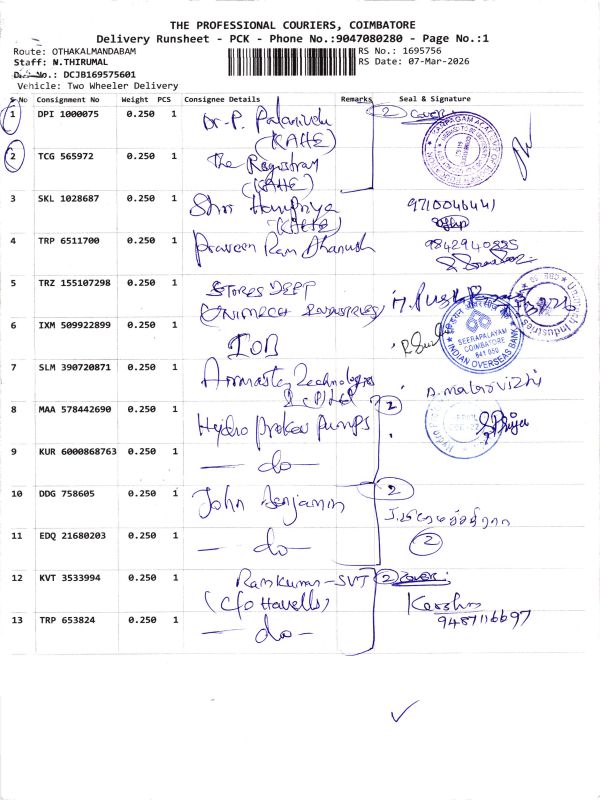 THE PROFESSIONAL COURIERS, COIMBATORE
Delivery Runsheet - PCK - Phone No.:9047080280 - Page No.:1
Route: OTHAKALMANDABAM RS No.: 1695756
Staff: N.THIRUMAL RS Date: 07-Mar-2026
No.: DCJB169575601
Vehicle: Two Wheeler Delivery
S No Consignment No Weight PCS Consignee Details Remarks Seal & Signature
1 DPI 1000075 0.250 1 Dr. P. Palanivelu (KAHE) 2 cover
2 TCG 565972 0.250 1 The Registrar (KAHE)
3 SKL 1028687 0.250 1 Shri (KAHE) 9710046441
4 TRP 6511700 0.250 1 Praveen Ram Dhanush 9842940885
5 TRZ 155107298 0.250 1 STORES DEPT
UNIMECH INDUSTRIES
6 IXM 509922899 0.250 1 IOB
INDIAN OVERSEAS BANK
SEERAPALAYAM
COIMBATORE
641 050
7 SLM 390720871 0.250 1 Technologies
8 MAA 578442690 0.250 1 Hydro Prokav Pumps 2
9 KUR 6000868763 0.250 1 — do —
10 DDG 758605 0.250 1 John Benjamin 2
11 EDQ 21680203 0.250 1 — do — 2
12 KVT 3533994 0.250 1 Ramkumar - SVT 2 cover
(C/o Havells)
13 TRP 653824 0.250 1 — do — 9487116697